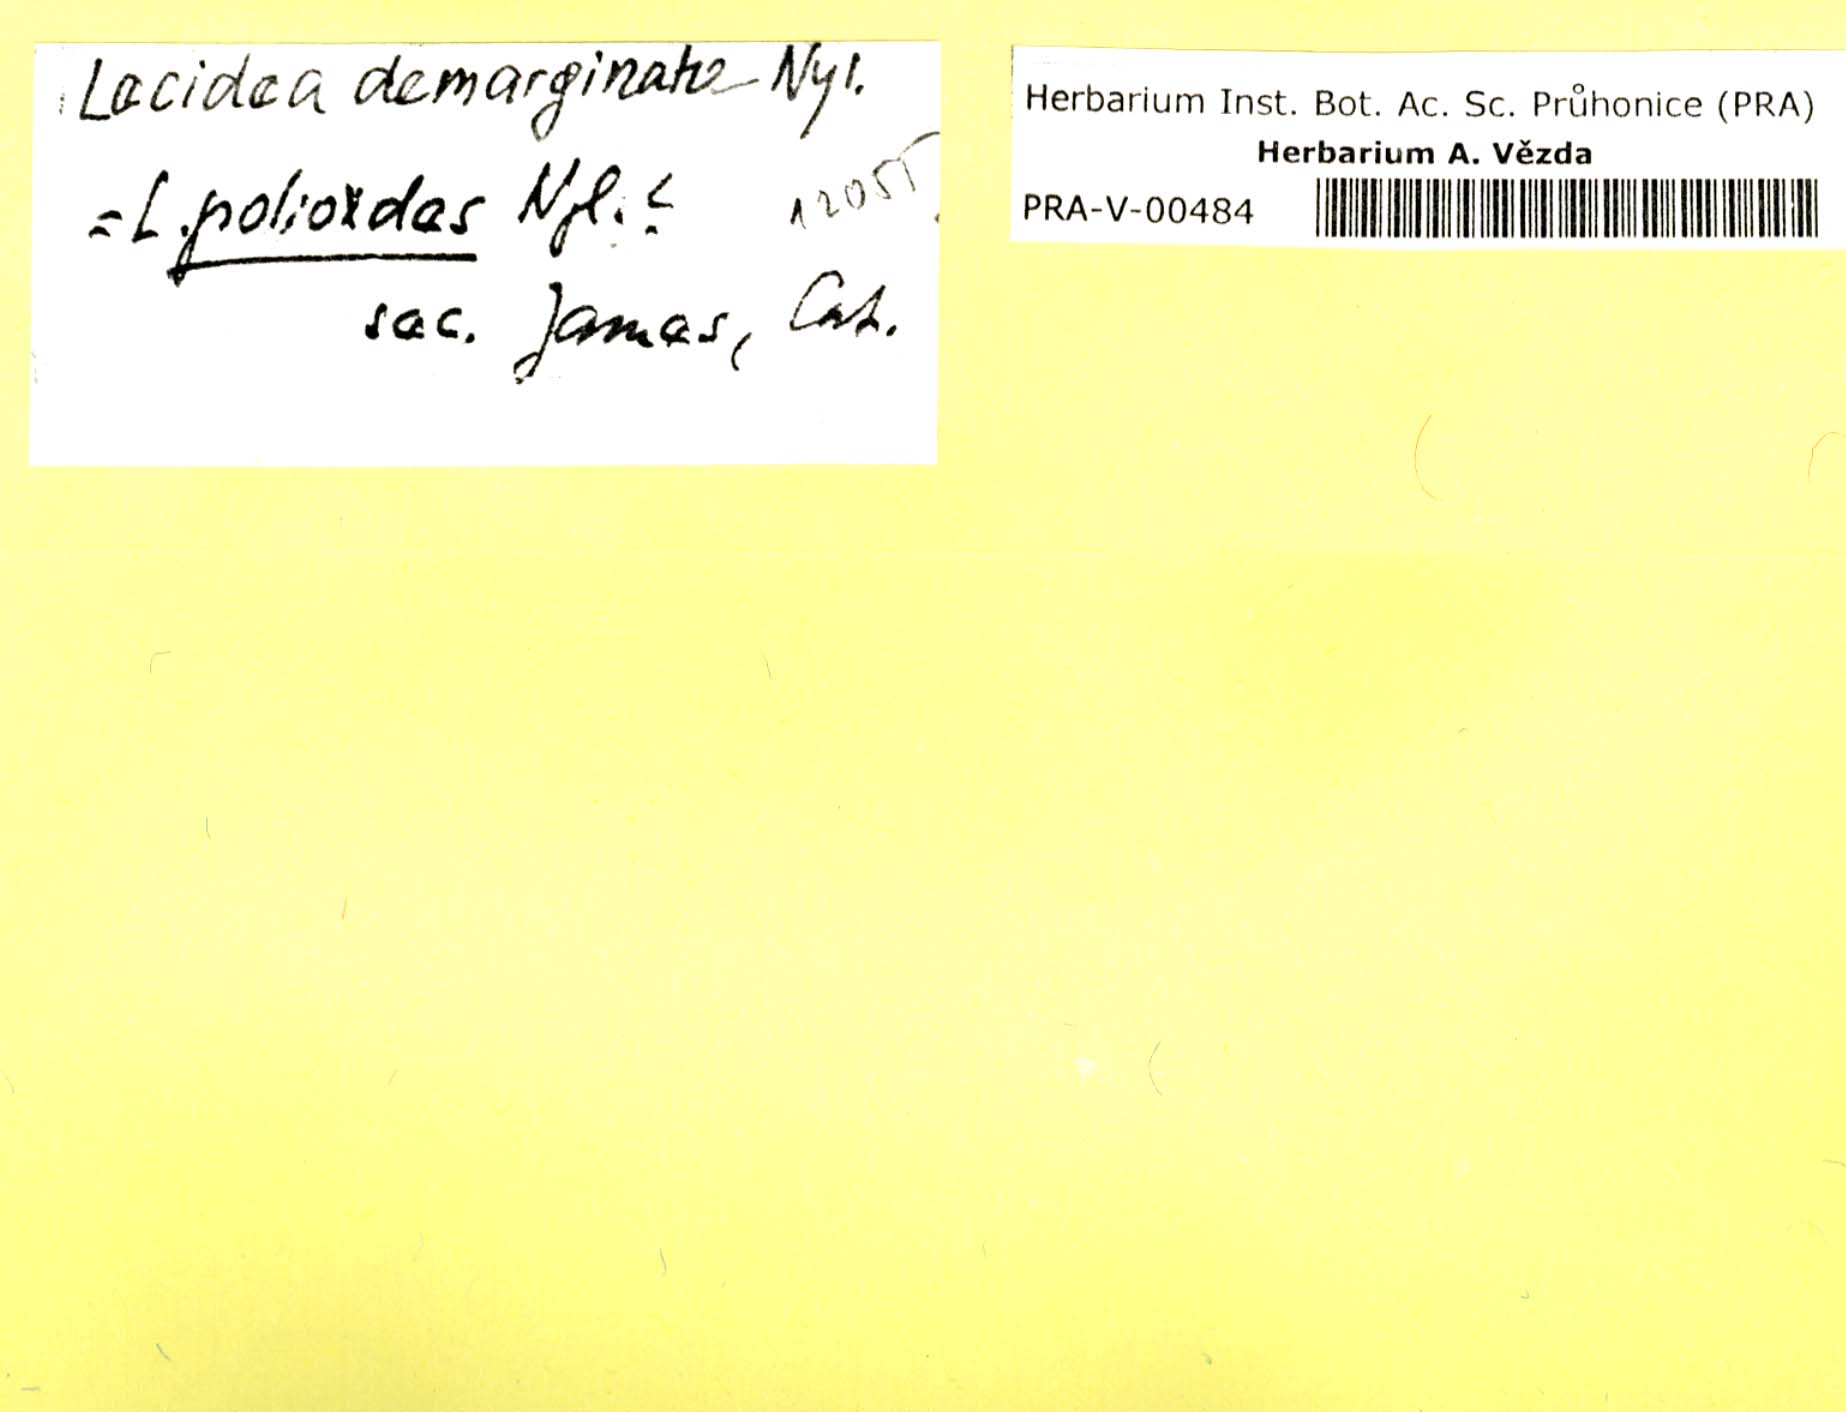 Lecidea demarginata Nyl.
= L. polioides Nyl. ?
12055
sec. James, Cat.
Herbarium Inst. Bot. Ac. Sc. Průhonice (PRA)
Herbarium A. Vězda
PRA-V-00484